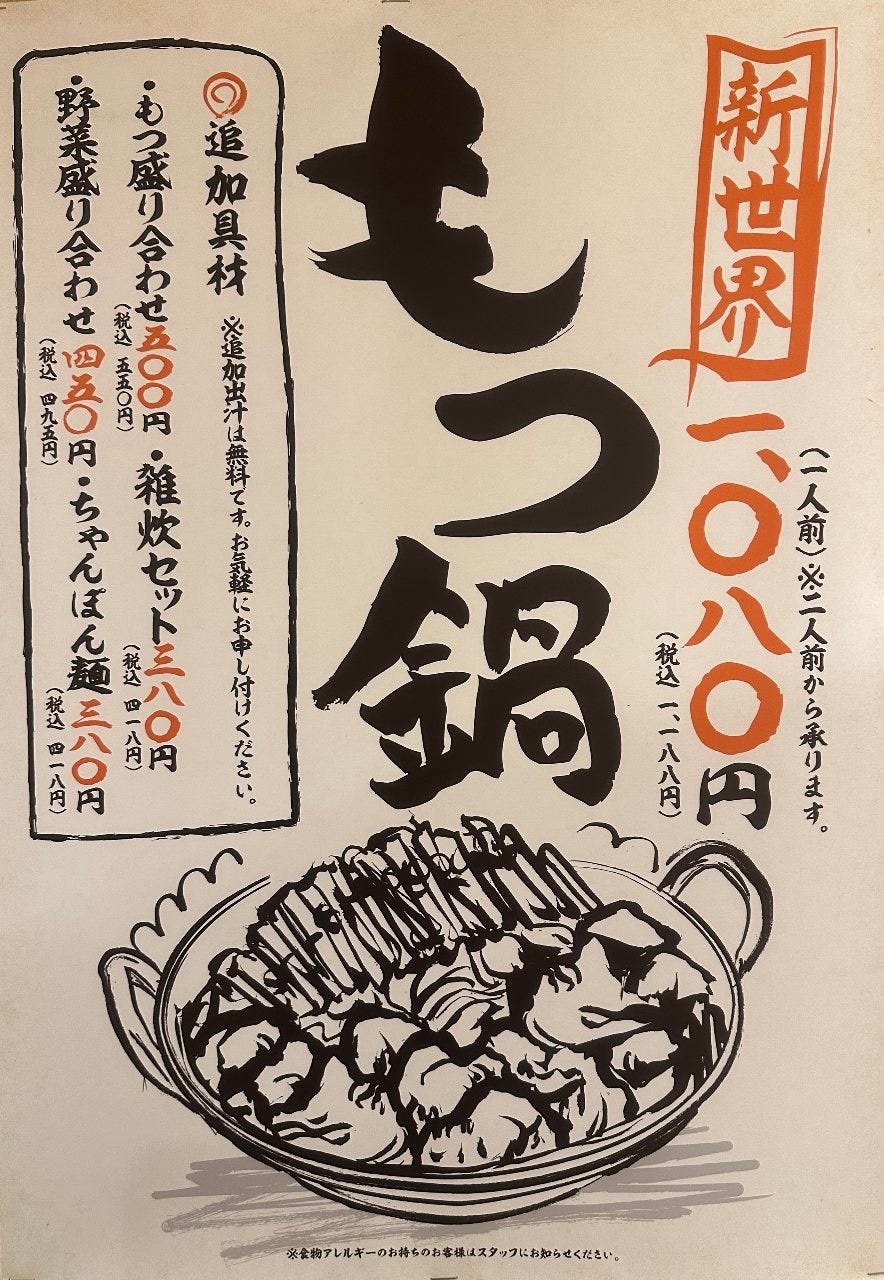 新世界
もつ鍋
一、〇八〇円
(一人前)※二人前から承ります。
(税込 一、一八八円)
◎追加具材 ※追加出汁は無料です。お気軽にお申し付けください。
・もつ盛り合わせ五〇〇円
(税込 五五〇円)
・雑炊セット三八〇円
(税込 四一八円)
・野菜盛り合わせ四五〇円
(税込 四九五円)
・ちゃんぽん麺三八〇円
(税込 四一八円)
※食物アレルギーのお持ちのお客様はスタッフにお知らせください。